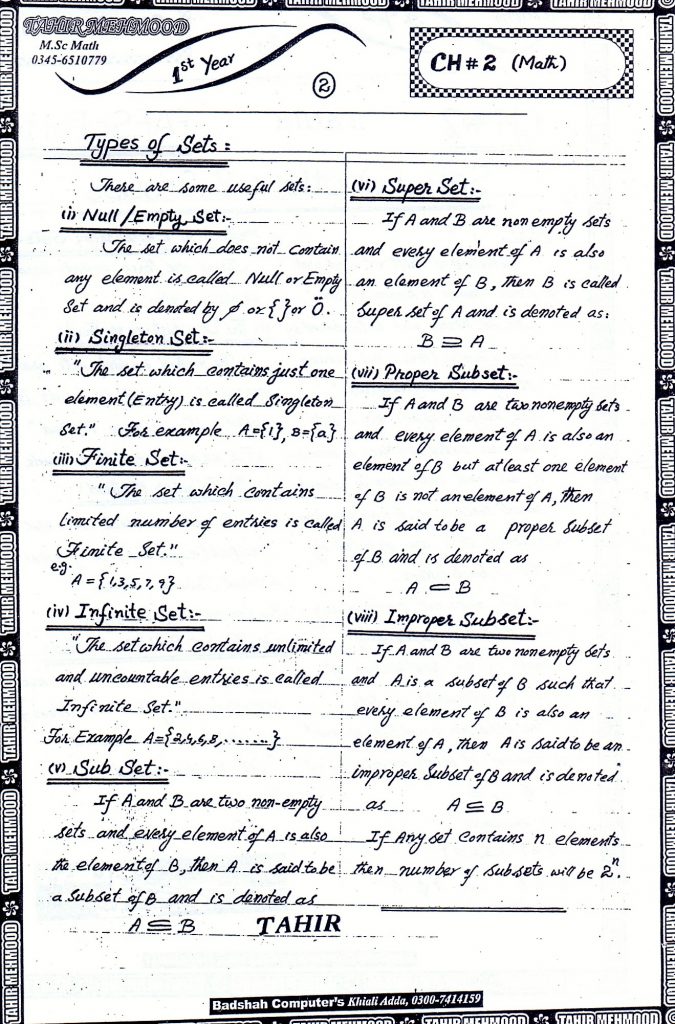 TAHIR MEHMOOD
M.Sc Math
0345-6510779
1st Year
2
CH # 2 (Math)
Types of Sets :
There are some useful sets:
(i) Null/Empty Set:-
The set which does not contain
any element is called Null or Empty
Set and is denoted by ø or { } or Ö.
(ii) Singleton Set:-
"The set which contains just one
element (Entry) is called Singleton
Set." For example A={1}, B={a}
(iii) Finite Set:-
"The set which contains
limited number of entries is called
Finite Set."
e.g.
A = {1,3,5,7,9}
(iv) Infinite Set:-
"The set which contains unlimited
and uncountable entries is called
Infinite Set."
For Example A={2,4,6,8,.......}
(v) Sub Set:-
If A and B are two non-empty
sets and every element of A is also
the element of B, then A is said to be
a subset of B and is denoted as
A ⊆ B
(vi) Super Set:-
If A and B are non empty sets
and every element of A is also
an element of B, then B is called
Super set of A and is denoted as:
B ⊇ A
(vii) Proper Subset:-
If A and B are two nonempty sets
and every element of A is also an
element of B but atleast one element
of B is not an element of A, then
A is said to be a proper subset
of B and is denoted as
A ⊂ B
(viii) Improper Subset:-
If A and B are two nonempty sets
and A is a subset of B such that
every element of B is also an
element of A, then A is said to be an
improper Subset of B and is denoted
as A ⊆ B
If Any set contains n elements
then number of subsets will be 2ⁿ.
TAHIR
Badshah Computer's Khiali Adda, 0300-7414159
TAHIR MEHMOOD